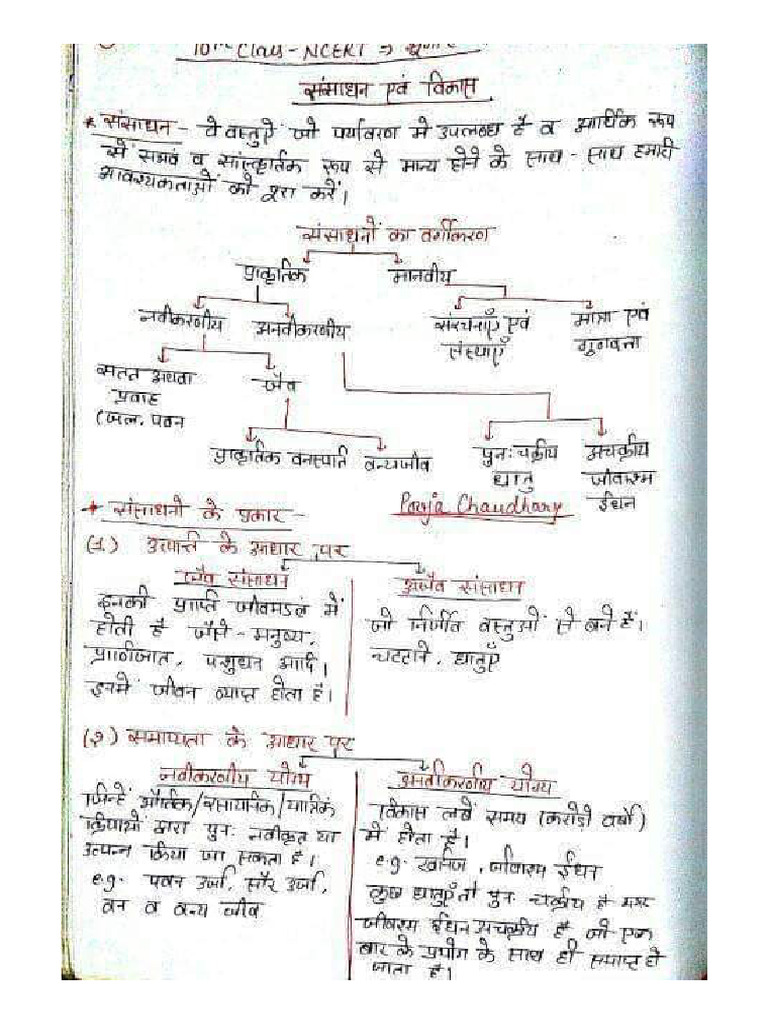 10th Class - NCERT ⇒ भूगोल
संसाधन एवं विकास
* संसाधन - वे वस्तुएँ जो पर्यावरण मे उपलब्ध है व आर्थिक रूप
से सभंव व सांस्कृर्तक रूप से मान्य होने के साथ - साथ हमारी
आवश्यकताओं को पूरा करें।
संसाधनों का वर्गीकरण
प्राकृतिक मानवीय
नवीकरणीय अनवीकरणीय संरचनाएँ एवं संस्थाएँ मात्रा एवं गुणवत्ता
सतत अथवा जैव
प्रवाह
(जल, पवन
प्राकृतिक वनस्पति वन्यजीव पुनः चक्रीय अचक्रीय
धातु जीवाश्म
ईधन
* संसाधनो के प्रकार - Pooja Chaudhary
(1.) उत्पत्ति के आधार पर
जैव संसाधन
इनकी प्राप्ति जीवमडंल में
होती है जैसे - मनुष्य,
प्राणिजात, पशुधन आदि।
इनमे जीवन व्याप्त होता है।
अजैव संसाधन
जो निर्जीव वस्तुओं से बने हैं।
चटटाने, धातुएँ
(2) समाप्यता के आधार पर
नवीकरणीय योग्य
जिन्हें भौतिक/रासायनिक/यांत्रिक
क्रियाओं द्वारा पुनः नवीकृत या
उत्पन्न किया जा सकता है।
e.g. पवन उर्जा, सौर उर्जा,
वन व वन्य जीव
अनवीकरणीय योग्य
विकास लबें समय (करोडो वर्षों)
में होता है।
e.g. खनिज, जीवाश्म ईधन
कुछ धातुएँ तो पुनः चक्रीय है मगर
जीवाश्म ईधन अचक्रीय है जो एक
बार के प्रयोग के साथ ही समाप्त हो
जाता है।